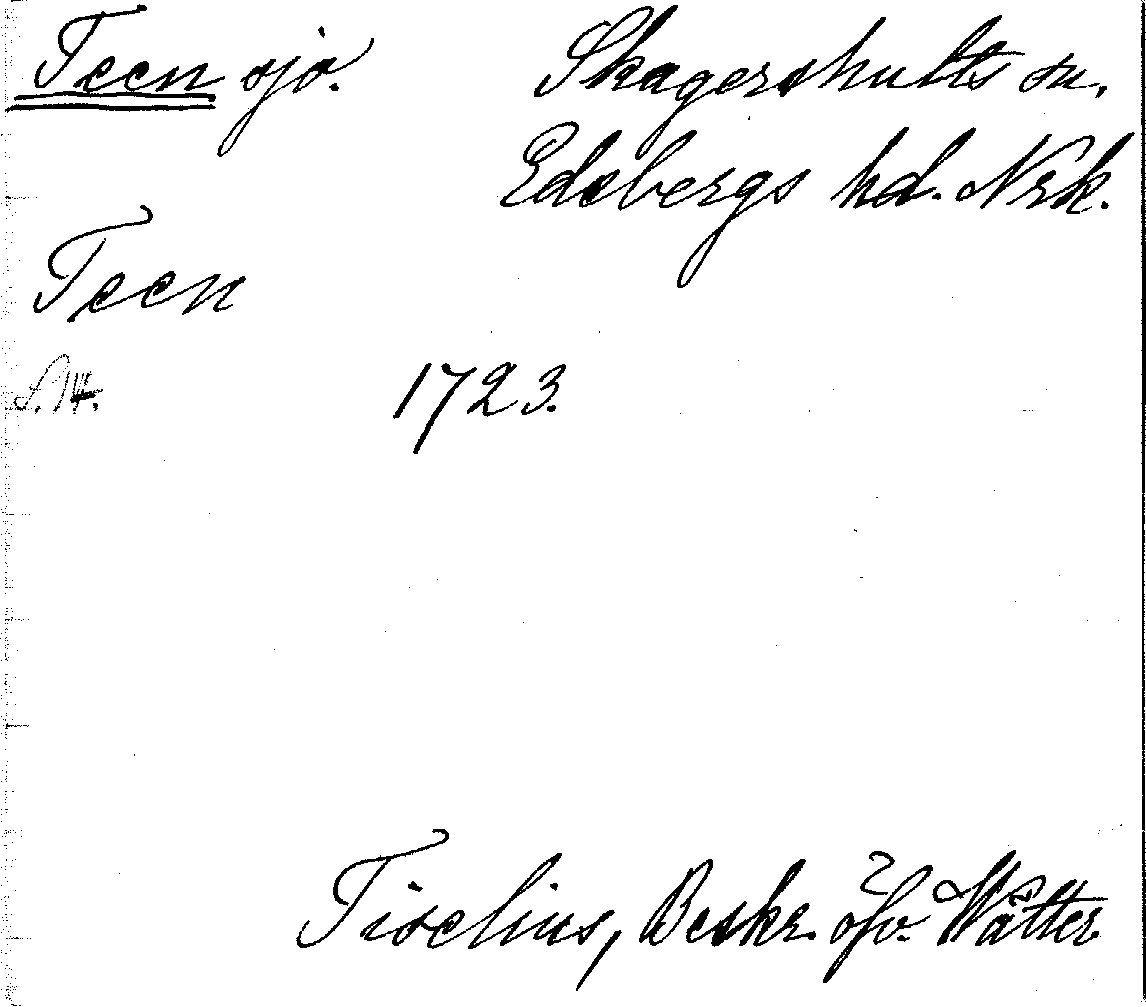 Teen sjö. Skagershults sn.
Edsbergs hd. Nrk.
Teen
S. 14. 1723.
Tiselius, Beskr. öfv. Wätter